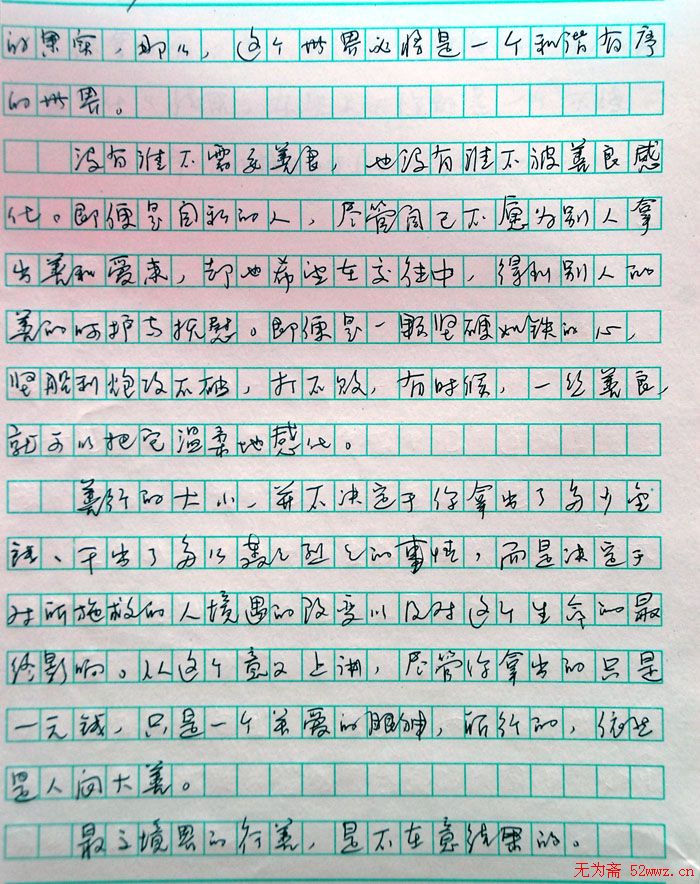 的果实，那么，这个世界必将是一个和谐有序
的世界。
没有谁不需要善良，也没有谁不被善良感
化。即便是自私的人，尽管自己不愿为别人拿
出善和爱来，却也希望在交往中，得到别人的
善的呵护与抚慰。即便是一颗坚硬如铁的心，
坚船利炮攻不破，打不败，有时候，一丝善良，
就可以把它温柔地感化。
善行的大小，并不决定于你拿出了多少金
钱、干出了多么轰轰烈烈的事情，而是决定于
对所施救的人境遇的改变以及对这个生命的最
终影响。从这个意义上讲，尽管你拿出的只是
一元钱，只是一个关爱的眼神，所行的，依然
是人间大善。
最高境界的行善，是不在意结果的。
无为斋 52wwz.cn